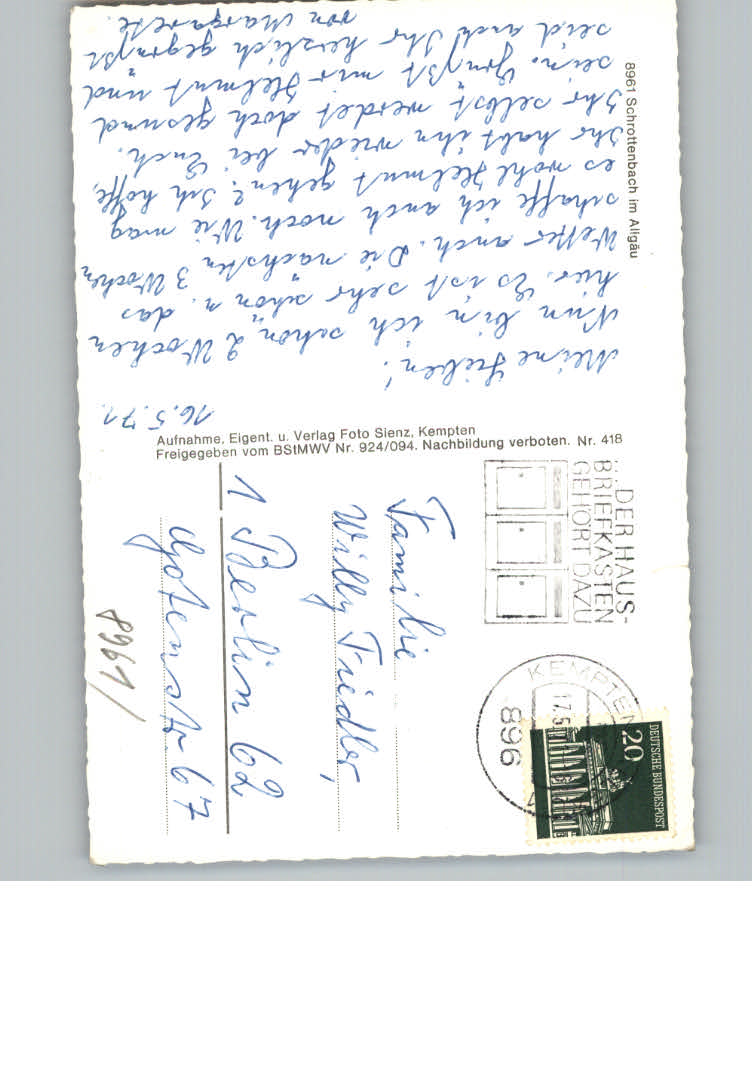 8961 Schrottenbach im Allgäu
16.5.71.
Meine Lieben!
Nun bin ich schon 2 Wochen
hier. Es ist sehr schön u. das
Wetter auch. Die nächsten 3 Wochen
schaffe ich auch noch. Wie mag
es wohl Helmut gehen? Ich hoffe,
Ihr habt ihn wieder bei Euch.
Ihr selbst werdet doch gesund
sein. Grüßt mir Helmut und
seid auch Ihr herzlich gegrüßt
von Margarete.
Aufnahme, Eigent. u. Verlag Foto Sienz, Kempten
Freigegeben vom BStMWV Nr. 924/094. Nachbildung verboten. Nr. 418
...DER HAUS-
BRIEFKASTEN
GEHÖRT DAZU
KEMPTEN
17.5
896
DEUTSCHE BUNDESPOST
20
Familie
Willy Fiedler,
1 Berlin 62
Gotenstr 67
8961/